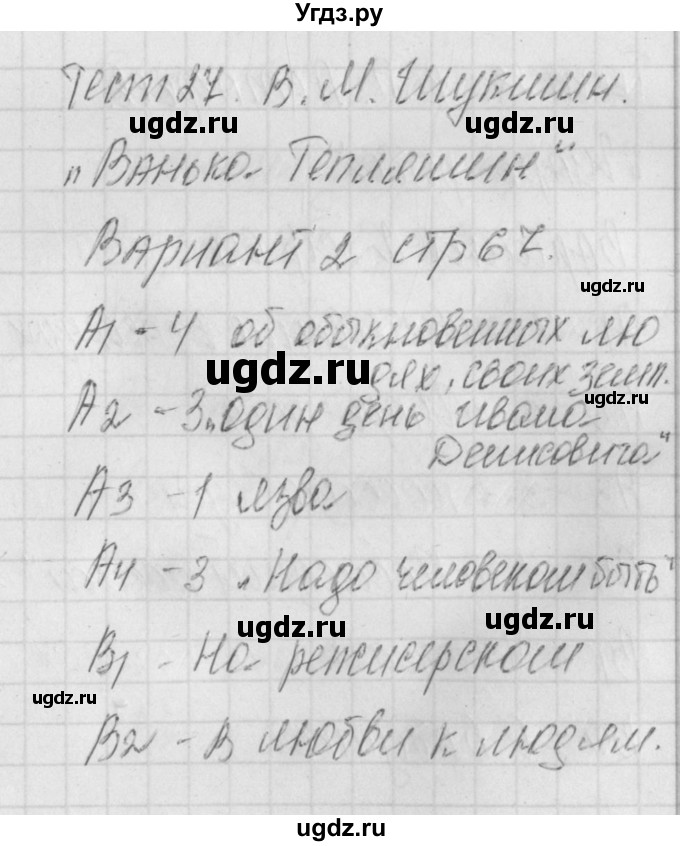 Угдз.ру
Тест 27. В. М. Шукшин.
ugdz.ru ugdz.ru
„Ванька Тепляшин“
Вариант 2 стр 67.
ugdz.ru
А1 - 4 об обыкновенных лю
ugdz.ru
дях, своих земл.
ugdz.ru
А2 - 3 „один день Ивана
Денисовича“
А3 - 1 язва
ugdz.ru
А4 - 3 „Надо человеком быть“
ugdz.ru ugdz.ru
В1 - На режисерском
ugdz.ru
В2 - В любви к людям.
ugdz.ru ugdz.ru
ugdz.ru